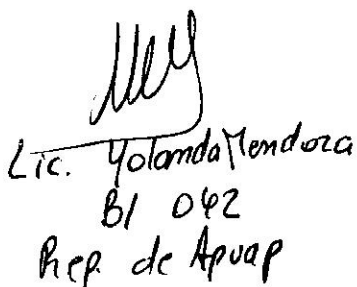 Lic. Yolanda Mendoza
B/ 042
Rep. de Apuap